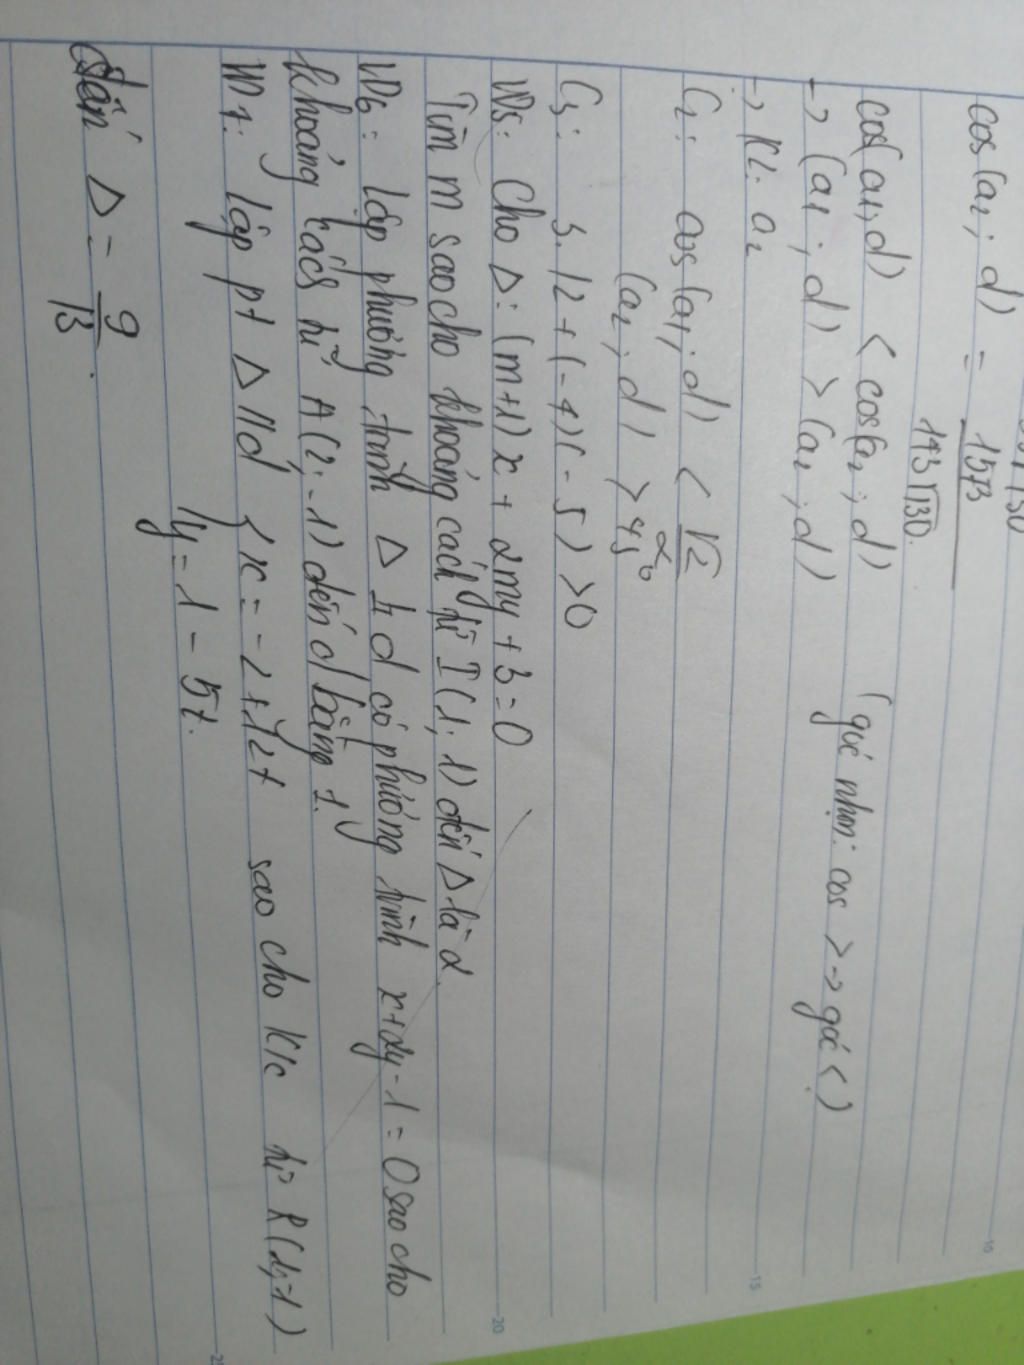 cos(a₂; d) = 1573
143√130.
cos(a₁; d) < cos(a₂; d)
→ (a₁; d) > (a₂; d) (góc nhọn: cos > → góc <)
→ KL: a₂
C₂: cos(a₁; d) < √2/2
(a₂; d) > 45°
C₃: 3.12 + (-4)(-5) > 0
VD5: Cho Δ: (m+1)x + 2my + 3 = 0
Tìm m sao cho khoảng cách từ I(1; 1) đến Δ là 2.
VD6: lập phương trình Δ ⊥ d có phương trình x+2y-1 = 0 sao cho
khoảng cách từ A(2; -1) đến d bằng 1.
VD7: lập pt Δ // d { x = -2 + 12t sao cho K/c từ R(2;-1)
y = 1 - 5t.
đến Δ = 9/13.